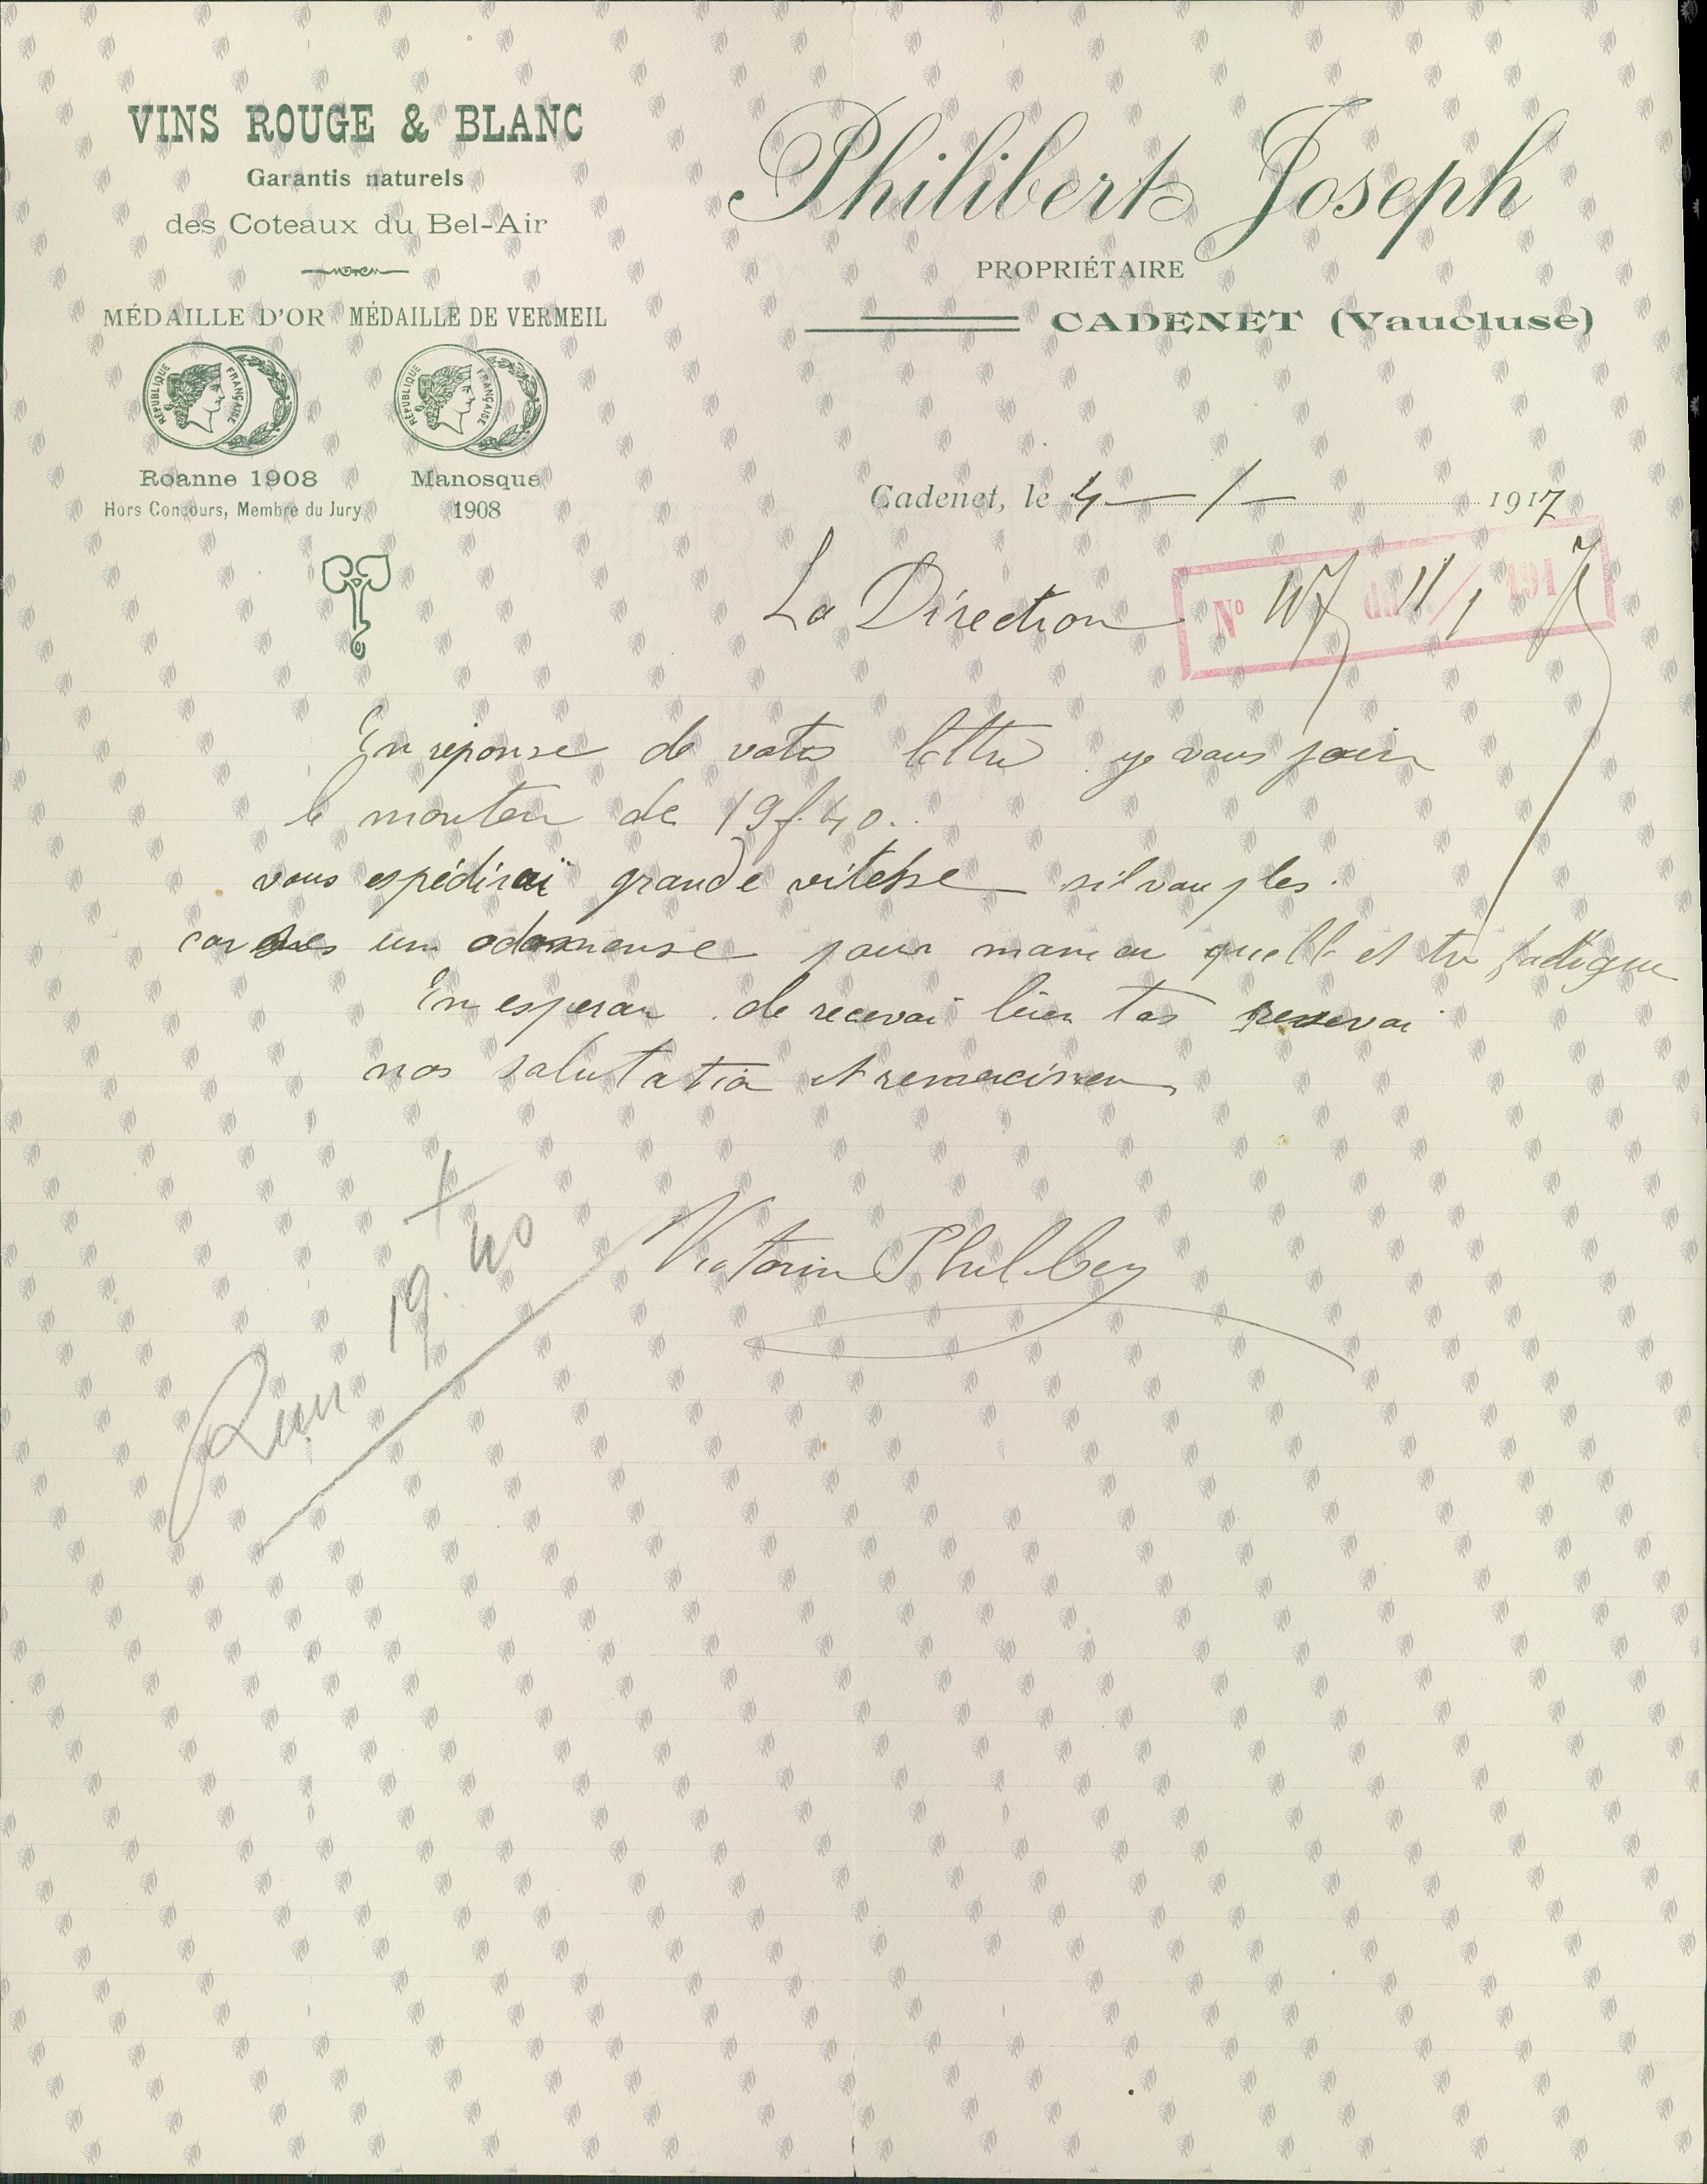 VINS ROUGE & BLANC
Garantis naturels
des Coteaux du Bel-Air
MÉDAILLE D'OR MÉDAILLE DE VERMEIL
RÉPUBLIQUE FRANÇAISE RÉPUBLIQUE FRANÇAISE
Roanne 1908 Manosque
Hors Concours, Membre du Jury 1908
Philibert Joseph
PROPRIÉTAIRE
CADENET (Vaucluse)
Cadenet, le 4 - 1 - 1917
La Direction
No 107 du 11/1 1917
En reponse de votre lettre ye vous join
le monten de 19f.40.
vous espédirai grande vitesse silvouples.
car un pour maman quelle et tre fadigue
En esperan de recevoi bien tos resevai
nos salutatio et remercimen
Victorin Philiber
19.40